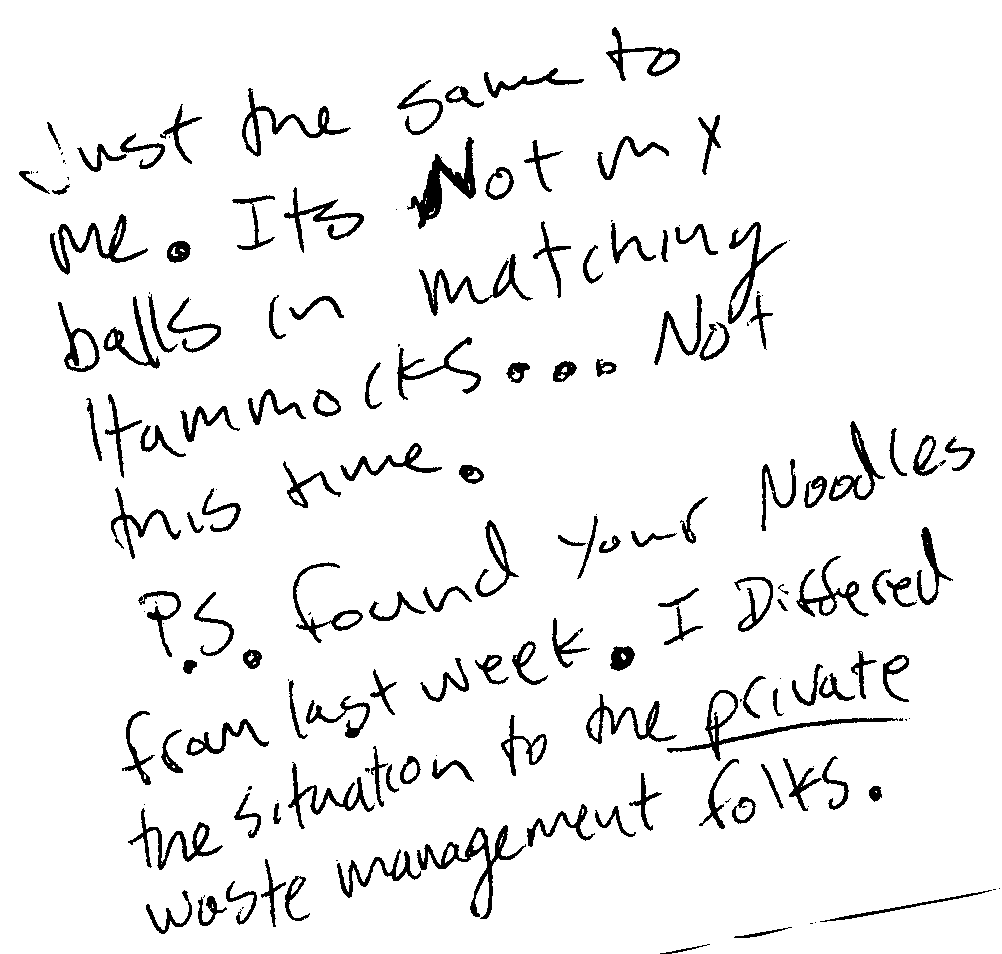 Just the same to
me. Its Not my
balls in matching
Hammocks... Not
this time.
P.S. found your Noodles
from last week. I Differed
the situation to the private
waste management folks.